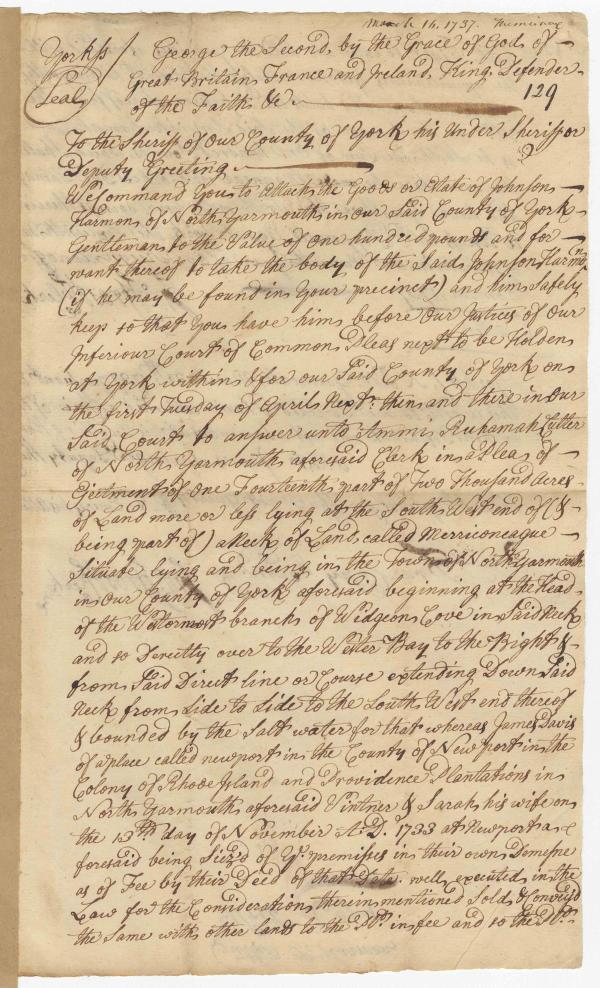 March 14, 1737.
Yorkss / George the Second by the Grace of God of
Great Britain France and Ireland King Defender
Seal of the Faith &c
129
To the Sheriff of our County of York his under Sheriff or
Deputy Greeting
We Command You to Attach the Goods or Estate of Johnson
Harmon of North Yarmouth in our Said County of York
Gentleman to the Value of one hundred pounds and for
want thereof to take the body of the Said Johnson Harmon
(if he may be found in Your precinct) and him Safely
keep so that You have him before our Justices of our
Inferiour Court of Common Pleas next to be Holden
at York within & for our Said County of York on
the first Tuesday of April Next. then and there in our
Said Court to answer unto Ammi Ruhamah Cutter
of North Yarmouth aforesaid Clerk in a Plea of
Ejectment of One Fourteenth part of Two Thousand Acres
of Land more or less lying at the South West end of (&
being part of) a Neck of Land called Merriconeague
Situate lying and being in the Town of North Yarmouth
in our County of York aforesaid beginning at the Head
of the Westermost branch of Widgeon Cove in Said Neck
and so Directly over to the Wester Bay to the Right &
from Said Direct line or Course extending Down Said
Neck from side to side to the South West end thereof
& bounded by the Salt water for that whereas James Davis
of a place called newport in the County of Newport in the
Colony of Rhode Island and Providence Plantations in
North Yarmouth aforesaid Vintner & Sarah his wife on
the 13th day of November A.D. 1733 at Newport a
foresaid being Siez'd of ye. premisses in their own Demesne
as of Fee by their Deed of that Date. well executed in the
Law for the Consideration therein mentioned Sold & Convey'd
the Same with other lands to the Plt. in fee and so the Plt.